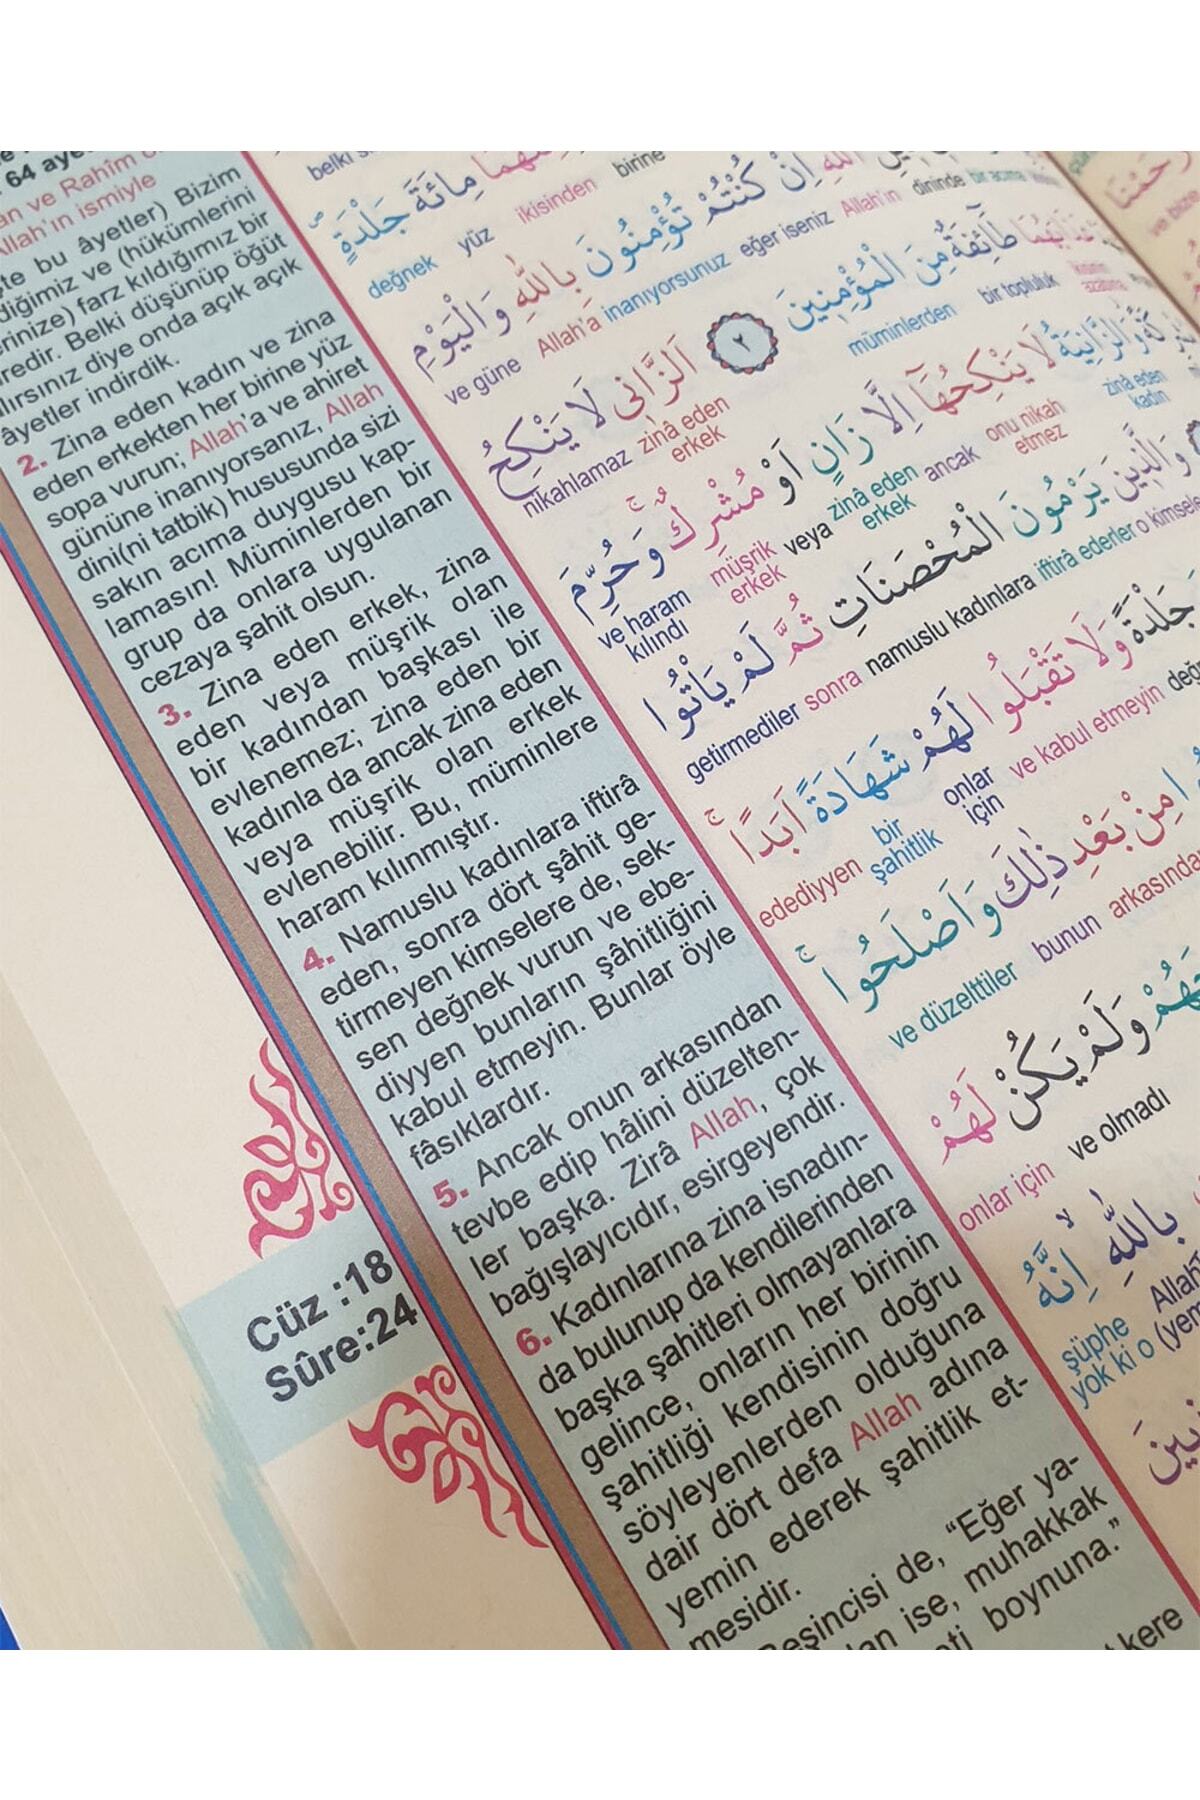 64
ve Rahîm
Allah'ın ismiyle
bu âyetler) Bizim
ve (hükümlerini
farz kıldığımız bir
Belki düşünüp öğüt
diye onda açık açık
âyetler indirdik.
2. Zina eden kadın ve zina
eden erkekten her birine yüz
sopa vurun; Allah'a ve ahiret
gününe inanıyorsanız, Allah
dini(ni tatbik) hususunda sizi
sakın acıma duygusu kap-
lamasın! Müminlerden bir
grup da onlara uygulanan
cezaya şahit olsun.
3. Zina eden erkek, zina
eden veya müşrik olan
bir kadından başkası ile
evlenemez; zina eden bir
kadınla da ancak zina eden
veya müşrik olan erkek
evlenebilir. Bu, müminlere
haram kılınmıştır.
4. Namuslu kadınlara iftirâ
eden, sonra dört şâhit ge-
tirmeyen kimselere de, sek-
sen değnek vurun ve ebe-
diyyen bunların şâhitliğini
kabul etmeyin. Bunlar öyle
fâsıklardır.
5. Ancak onun arkasından
tevbe edip hâlini düzelten-
ler başka. Zirâ Allah, çok
bağışlayıcıdır, esirgeyendir.
6. Kadınlarına zina isnadın-
da bulunup da kendilerinden
başka şahitleri olmayanlara
gelince, onların her birinin
şahitliği kendisinin doğru
söyleyenlerden olduğuna
dair dört defa Allah adına
yemin ederek şahitlik et-
mesidir.
de, "Eğer ya-
ise, muhakkak
boynuna."
Cüz :18
Sûre:24
belki
birine
مِائَةَ جَلْدَةٍ
ikisinden yüz değnek
اِنْ كُنْتُمْ تُؤْمِنُونَ بِاللّٰهِ وَالْيَوْمِ
dininde Allah'ın eğer iseniz inanıyorsunuz Allah'a ve güne
طَٓائِفَةٌ مِنَ الْمُؤْمِنِينَ ٢ اَلزَّانِى لَا يَنْكِحُ
bir topluluk müminlerden zinâ eden erkek nikahlamaz
وَالزَّانِيَةُ لَا يَنْكِحُهَٓا اِلَّا زَانٍ اَوْ مُشْرِكٌ وَحُرِّمَ
zinâ eden kadın onu nikah etmez ancak zinâ eden erkek veya müşrik erkek ve haram kılındı
وَالَّذِينَ يَرْمُونَ الْمُحْصَنَاتِ ثُمَّ لَمْ يَأْتُوا
o kimseler iftirâ ederler namuslu kadınlara sonra getirmediler
جَلْدَةً وَلَا تَقْبَلُوا لَهُمْ شَهَادَةً اَبَدًا
ve kabul etmeyin onlar için bir şahitlik edediyyen
مِنْ بَعْدِ ذٰلِكَ وَاَصْلَحُوا
bunun ve düzelttiler
وَلَمْ يَكُنْ لَهُمْ
ve olmadı onlar için
بِاللّٰهِ اِنَّهُ
şüphe yok ki o